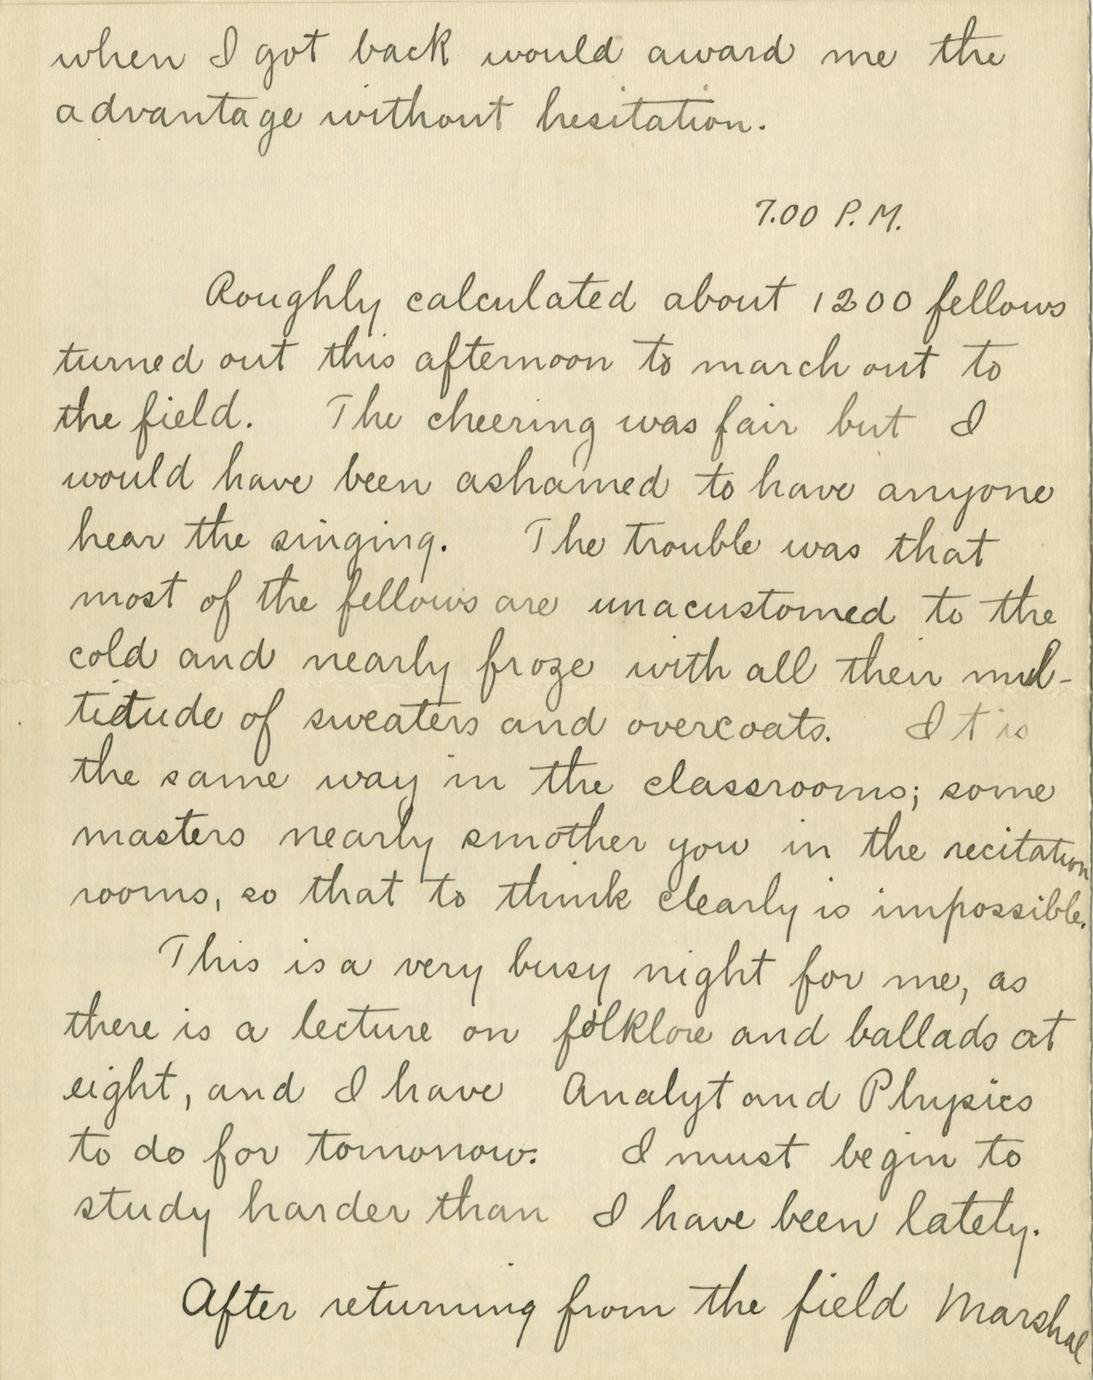 when I got back would award me the
advantage without hesitation.
7.00 P.M.
Roughly calculated about 1200 fellows
turned out this afternoon to march out to
the field. The cheering was fair but I
would have been ashamed to have anyone
hear the singing. The trouble was that
most of the fellows are unacustomed to the
cold and nearly froze with all their mul-
titude of sweaters and overcoats. It is
the same way in the classrooms; some
masters nearly smother you in the recitation
rooms, so that to think clearly is impossible.
This is a very busy night for me, as
there is a lecture on folklore and ballads at
eight, and I have Analyt and Physics
to do for tomorrow. I must begin to
study harder than I have been lately.
After returning from the field Marshal